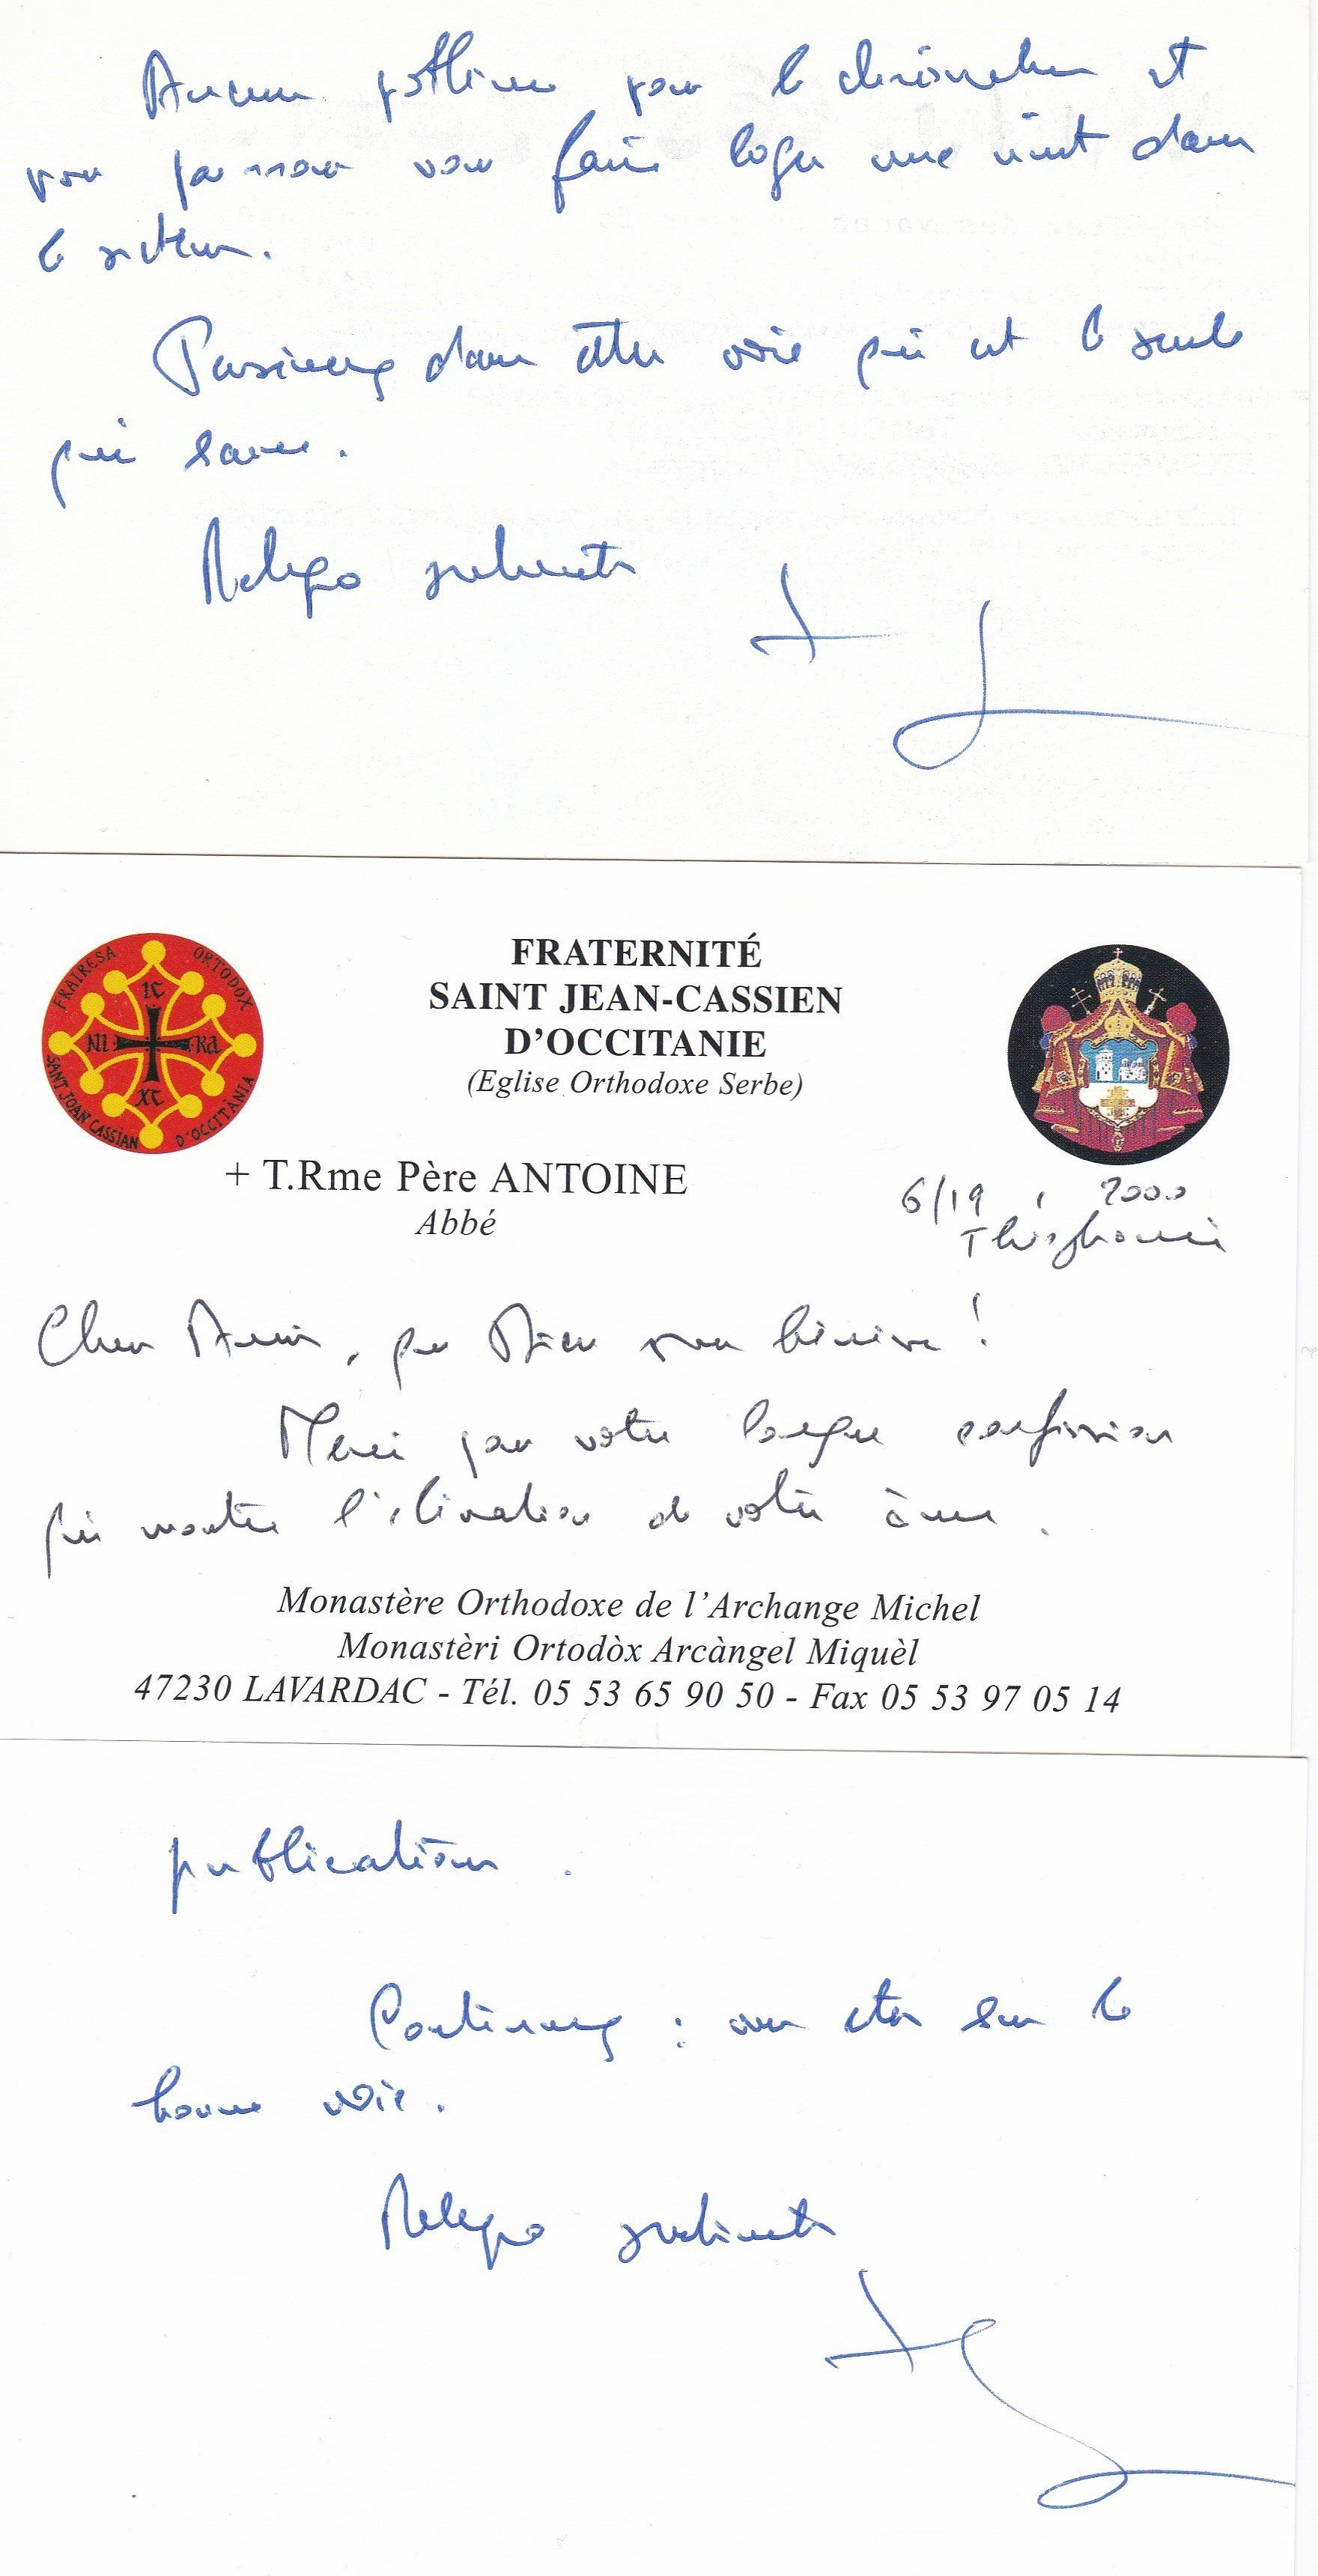 Aucun problème pour le chrismation et
vous pourrez vous faire loger une nuit dans
le secteur.
Persévérez dans cette voie qui est la seule
qui sauve.
FRAIRESA ORTODOX
SANT JOAN CASSIAN D'OCCITÀNIA
IC
NI KA
XC
FRATERNITÉ
SAINT JEAN-CASSIEN
D'OCCITANIE
(Eglise Orthodoxe Serbe)
+ T.Rme Père ANTOINE
Abbé
6/19 1 2000
Théophanie
Cher Ami, que Dieu vous bénisse !
Merci pour votre longue confession
qui montre l'élévation de votre âme.
Monastère Orthodoxe de l'Archange Michel
Monastèri Ortodòx Arcàngel Miquèl
47230 LAVARDAC - Tél. 05 53 65 90 50 - Fax 05 53 97 05 14
publications.
Continuez : vous êtes sur la
bonne voie.